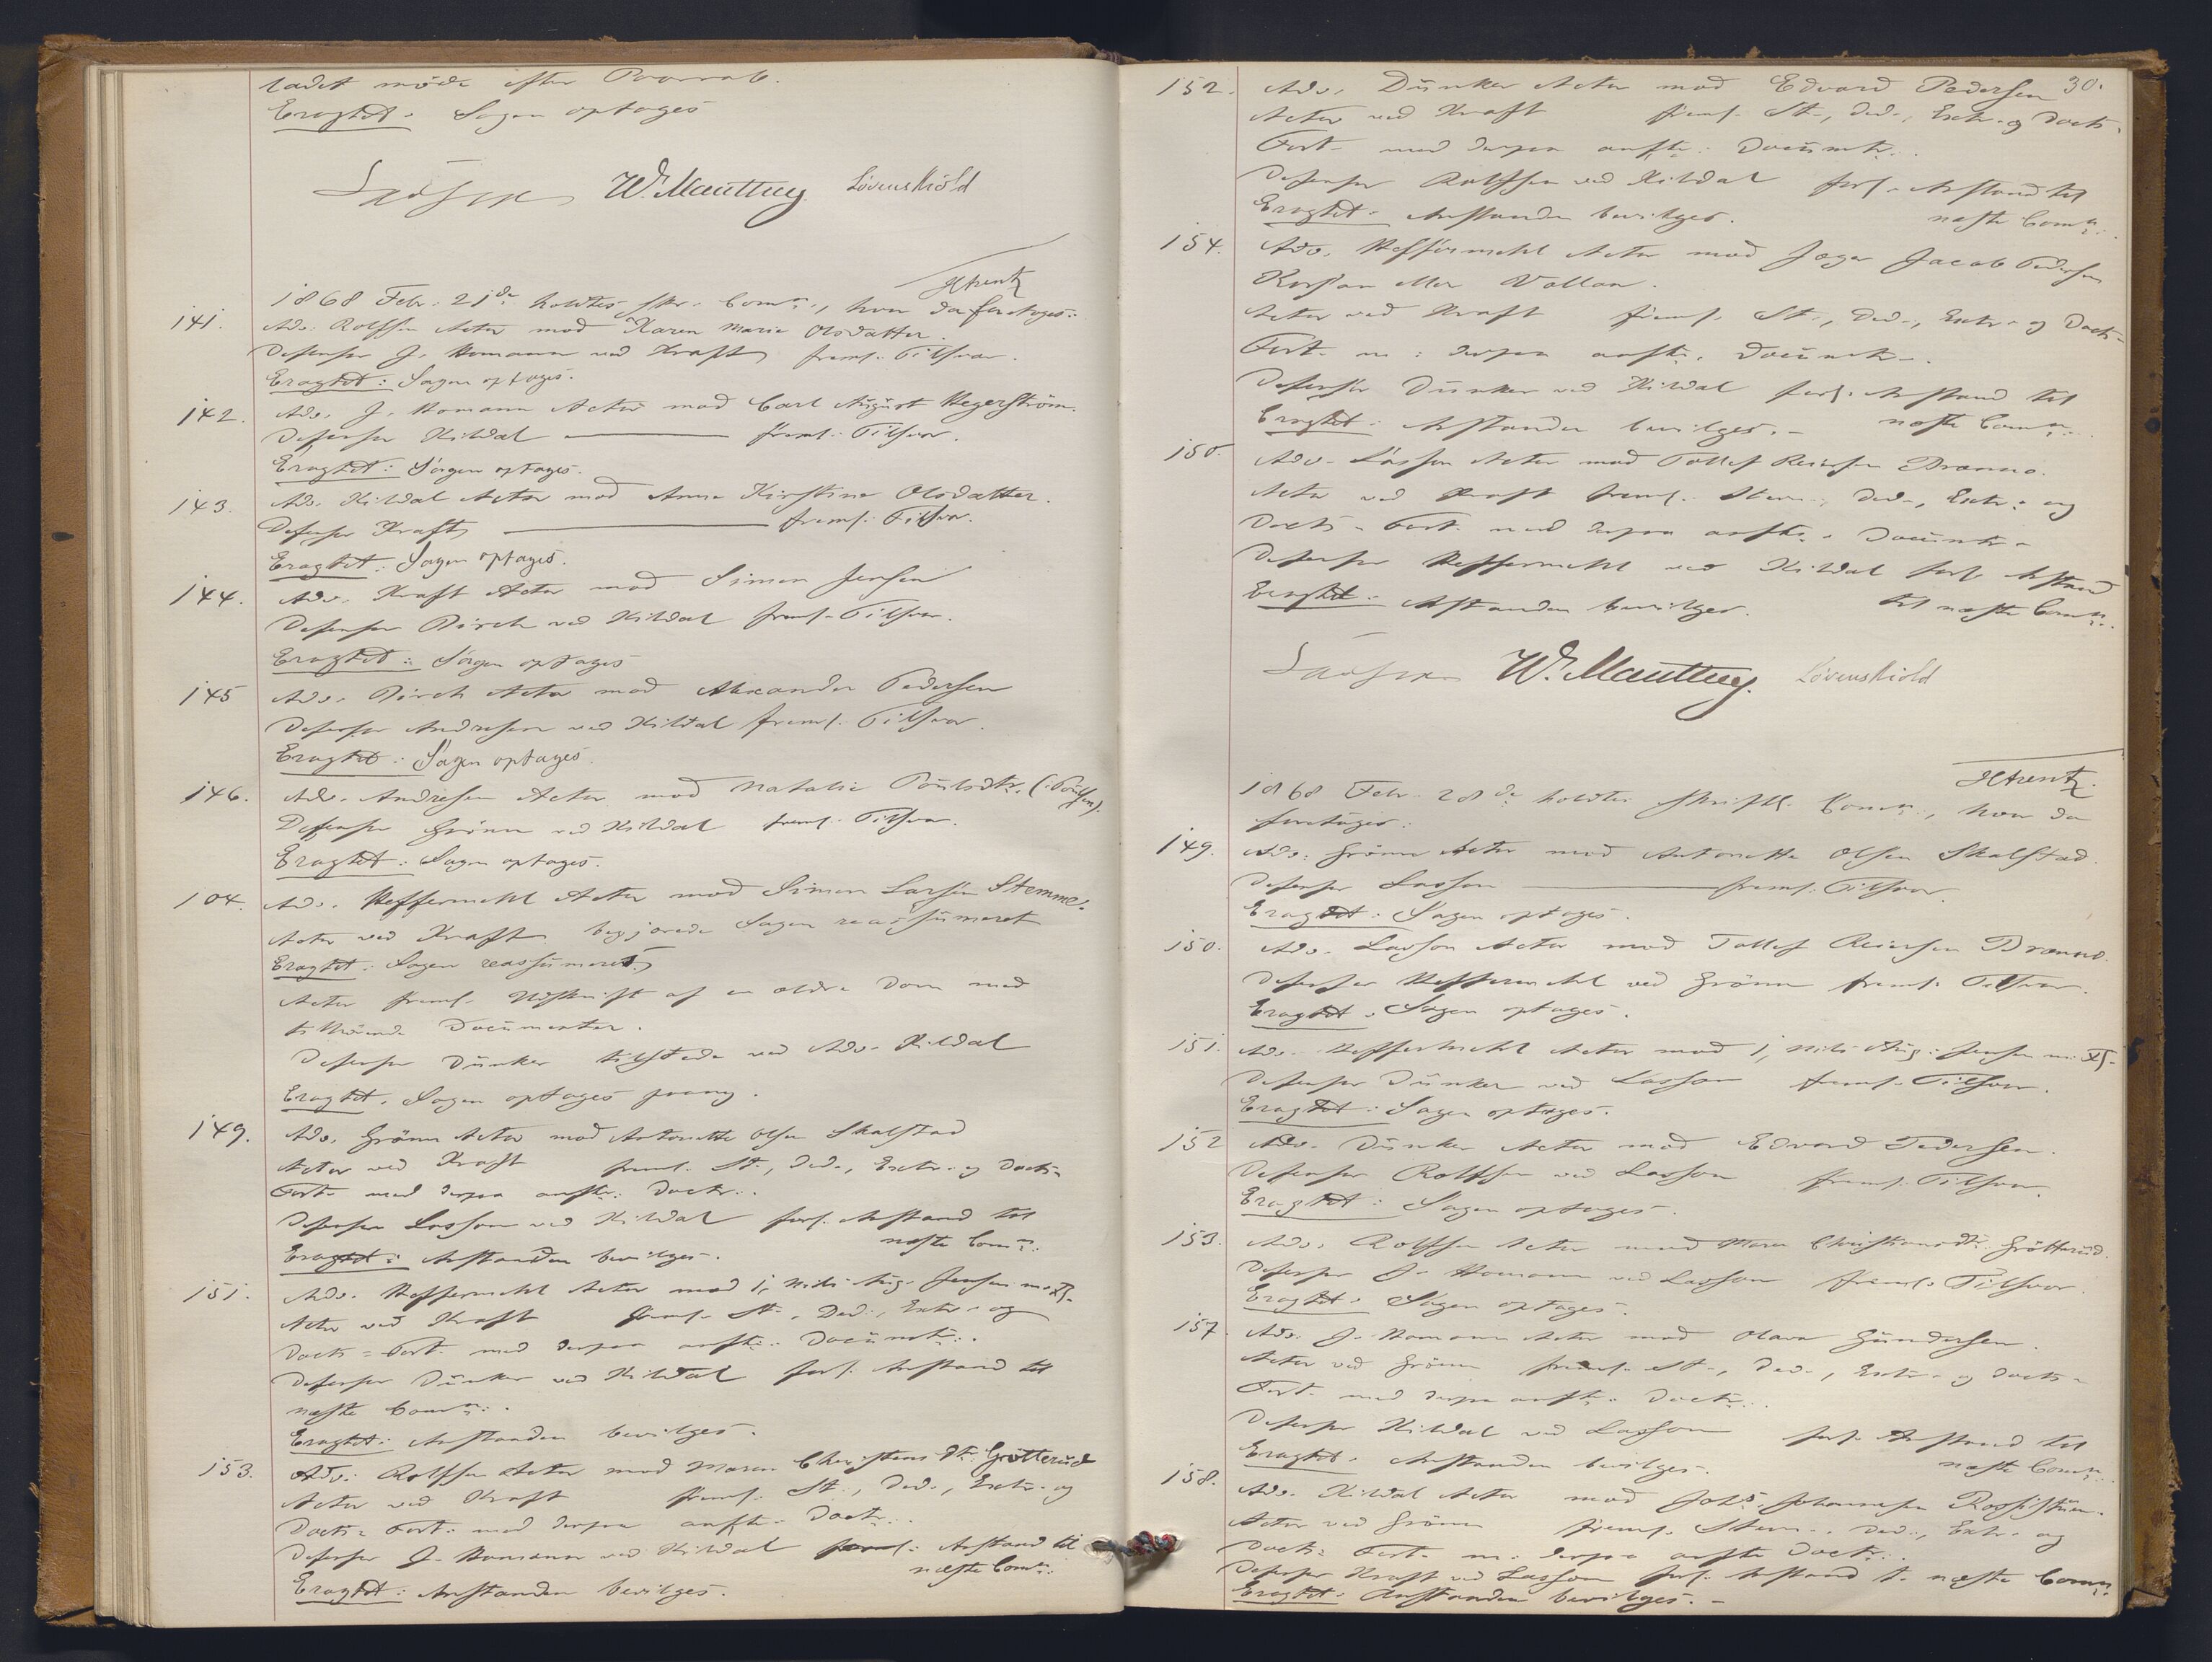 ladet møde efter Paaraab.
Eragtet: Sagen optages
Lasson W. Manthey Løvenskiold
HArentz
1868 Febr. 21de holdtes skr. Comn:, hvor da foretoges:
141. Adv. Rolffsen Actor mod Karen Marie Olsdatter.
Defensor J. Homann ved Kraft freml. Tilsvar.
Eragtet: Sagen optages.
142. Adv. J. Homann Actor mod Carl August Hegerström.
Defensor Kildal ——— freml. Tilsvar.
Eragtet: Sagen optages.
143. Adv. Kildal Actor mod Anne Kirstine Olsdatter.
Defensor Kraft ——— freml. Tilsvar.
Eragtet: Sagen optages.
144. Adv. Kraft Actor mod Simon Jensen
Defensor Birch ved Kildal freml. Tilsvar.
Eragtet: Sagen optages
145 Adv. Birch Actor mod Alexander Pedersen
Defensor Andresen ved Kildal freml. Tilsvar.
Eragtet: Sagen optages.
146. Adv. Andresen Actor mod Natalie Poulsdtr. (: Poulsen).
Defensor Grönn ved Kildal freml. Tilsvar.
Eragtet: Sagen optages.
104. Adv. Heffermehl Actor mod Simon Larsen Stemme.
Actor ved Kraft begjærede Sagen reassumeret
Eragtet: Sagen reassumeret.
Actor freml. Udskrift af en ældre Dom med
tilhörende Documenter.
Defensor Dunker tilstede ved Adv. Kildal
Eragtet. Sagen optages paany.
149. Adv. Grönn Actor mod Antonette Olsen Skalstad
Actor ved Kraft freml. St., Ded., Extr. og Docts-
Fort. med derpaa anfte: Doctr:.
Defensor Lasson ved Kildal forl. Anstand til
næste Comn:.
Eragtet: Anstanden bevilges.
151. Adv. Heffermehl Actor mod 1, Nils Aug. Jensen m. Fl.
Actor ved Kraft freml. St., Ded., Extr. og
Docts-Fort. med derpaa anfte: Documtr:.
Defensor Dunker ved Kildal forl. Anstand til
næste Comn:.
Eragtet: Anstanden bevilges.
153. Adv: Rolffsen Actor mod Maren Christensdtr: Grötterud
Actor ved Kraft freml. St., Ded., Extr. og
Docts-Fort. med derpaa anfte. Doctr:.
Defensor J. Homann ved Kildal forl: Anstand til
næste Comn:.
Eragtet: Anstanden bevilges.
30.
152. Adv. Dunker Actor mod Edvard Pedersen
Actor ved Kraft freml. St., Ded., Extr. og Docts-
Fort. med derpaa anfte: Documtr:.
Defensor Rolffsen ved Kildal forl. Anstand til
næste Comn:.
Eragtet: Anstanden bevilges.
154. Adv. Heffermehl Actor mod Jacob Pedersen
Actor ved Kraft freml. St., Ded., Extr. og Docts-
Fort. m: derpaa anfte. Documtr.
Defensor Dunker ved Kildal forl. Anstand til
næste Comn:.
Eragtet: Anstanden bevilges.
150. Adv. Lasson Actor mod Tollef Reiersen Brænno.
Actor ved Kraft freml. Stevn., Ded., Extr: og
Docts-Fort. med derpaa anfte. Documtr.
Defensor Heffermehl ved Kildal forl. Anstand
til næste Comn:.
Eragtet: Anstanden bevilges.
Lasson W. Manthey. Løvenskiold
HArentz.
1868 Febr. 28de holdtes skriftl. Comn:, hvor da
foretoges:
149. Adv: Grönn Actor mod Antonette Olsen Skalstad.
Defensor Lasson ——— freml. Tilsvar.
Eragtet: Sagen optages.
150. Adv. Lasson Actor mod Tollef Reiersen Brænno.
Defensor Heffermehl ved Grönn freml. Tilsvar.
Eragtet. Sagen optages.
151. Adv. Heffermehl Actor mod 1, Nils Aug: Jensen m. Fl.
Defensor Dunker ved Lasson freml. Tilsvar.
Eragtet: Sagen optages.
152 Adv. Dunker Actor mod Edvard Pedersen.
Defensor Rolffsen ved Lasson freml. Tilsvar.
Eragtet: Sagen optages.
153. Adv. Rolffsen Actor mod Maren Christensdtr. Grötterud.
Defensor J. Homann ved Lasson freml. Tilsvar.
Eragtet. Sagen optages.
157. Adv. J. Homann Actor mod Olava Gundersen.
Actor ved Grönn freml. St., Ded., Extr. og Docts-
Fort. med derpaa anfte. Doctr:.
Defensor Kildal ved Lasson forl. Anstand til
næste Comn:.
Eragtet. Anstanden bevilges.
158. Adv. Kildal Actor mod Johs. Johannesen
Actor ved Grönn freml. Stevn., Ded., Extr. og
Docts-Fort. m. derpaa anfte Doctr:.
Defensor Kraft ved Lasson forl. Anstand t. næste Comn:.
Eragtet: Anstanden bevilges. -